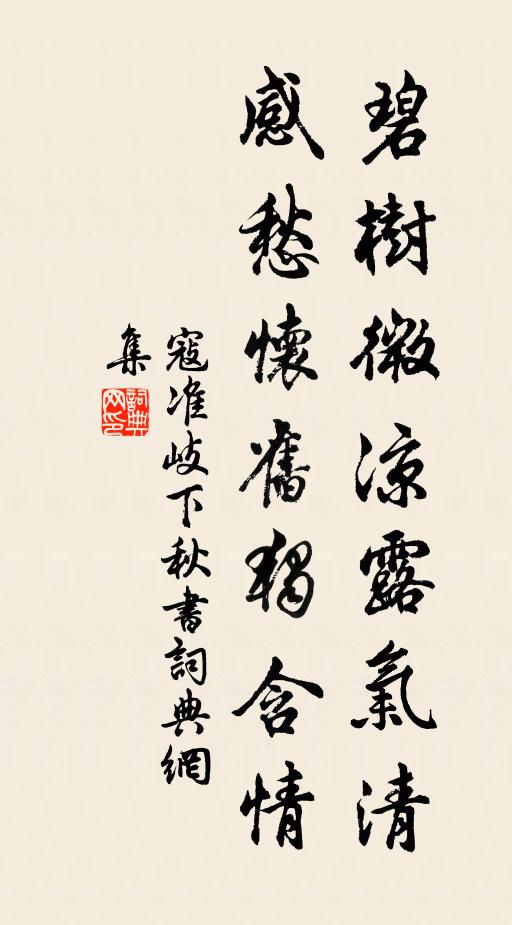 碧樹微涼露氣清
感愁懷舊獨含情
寇准岐下秋書詞典網
集
詞典
网印